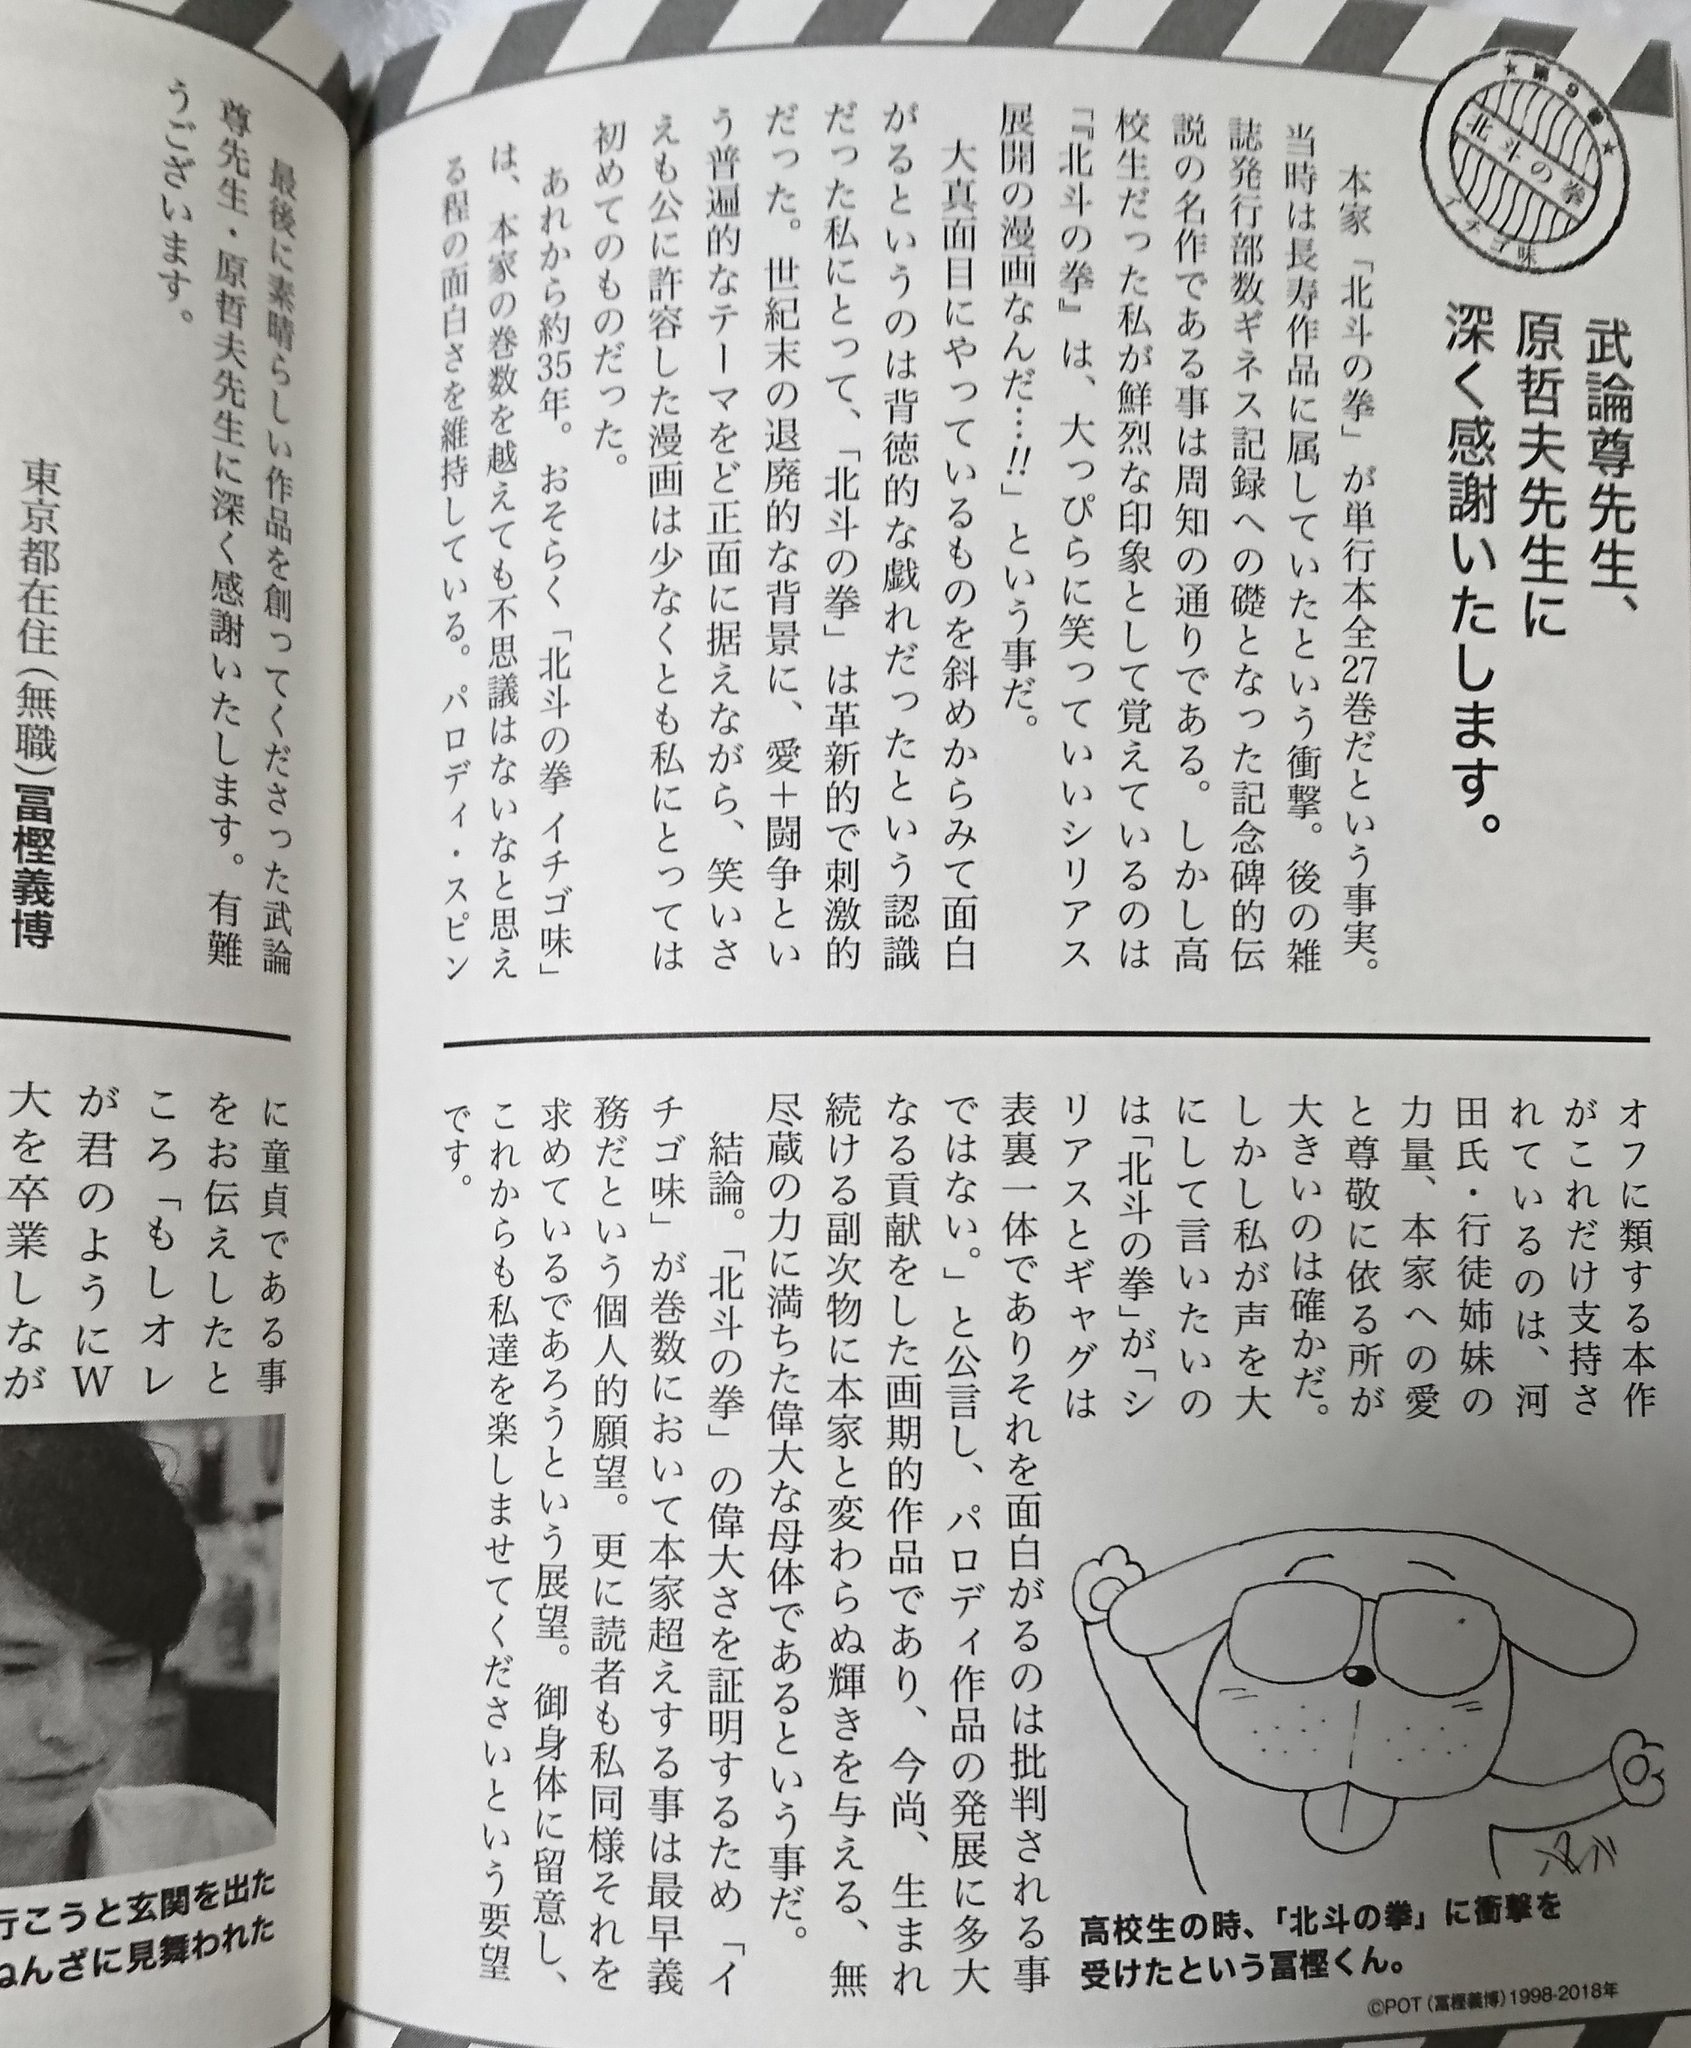 ★第9巻★
北斗の拳
イチゴ味
武論尊先生、
原哲夫先生に
深く感謝いたします。
本家「北斗の拳」が単行本全27巻だという事実。
当時は長寿作品に属していたという衝撃。後の雑
誌発行部数ギネス記録への礎となった記念碑的伝
説の名作である事は周知の通りである。しかし高
校生だった私が鮮烈な印象として覚えているのは
『『北斗の拳』は、大っぴらに笑っていいシリアス
展開の漫画なんだ…!!」という事だ。
大真面目にやっているものを斜めからみて面白
がるというのは背徳的な戯れだったという認識
だった私にとって、「北斗の拳」は革新的で刺激的
だった。世紀末の退廃的な背景に、愛＋闘争とい
う普遍的なテーマをど正面に据えながら、笑いさ
えも公に許容した漫画は少なくとも私にとっては
初めてのものだった。
あれから約35年。おそらく「北斗の拳 イチゴ味」
は、本家の巻数を越えても不思議はないなと思え
る程の面白さを維持している。パロディ・スピン
オフに類する本作
がこれだけ支持さ
れているのは、河
田氏・行徒姉妹の
力量、本家への愛
と尊敬に依る所が
大きいのは確かだ。
しかし私が声を大
にして言いたいの
は「北斗の拳」が「シ
リアスとギャグは
表裏一体でありそれを面白がるのは批判される事
ではない。」と公言し、パロディ作品の発展に多大
なる貢献をした画期的作品であり、今尚、生まれ
続ける副次物に本家と変わらぬ輝きを与える、無
尽蔵の力に満ちた偉大な母体であるという事だ。
結論。「北斗の拳」の偉大さを証明するため「イ
チゴ味」が巻数において本家超えする事は最早義
務だという個人的願望。更に読者も私同様それを
求めているであろうという展望。御身体に留意し、
これからも私達を楽しませてくださいという要望
です。
高校生の時、「北斗の拳」に衝撃を
受けたという冨樫くん。
©POT（冨樫義博）1998-2018年
最後に素晴らしい作品を創ってくださった武論
尊先生・原哲夫先生に深く感謝いたします。有難
うございます。
東京都在住（無職）冨樫義博
に童貞である事
をお伝えしたと
ころ「もしオレ
が君のようにW
大を卒業しなが
行こうと玄関を出た
ねんざに見舞われた